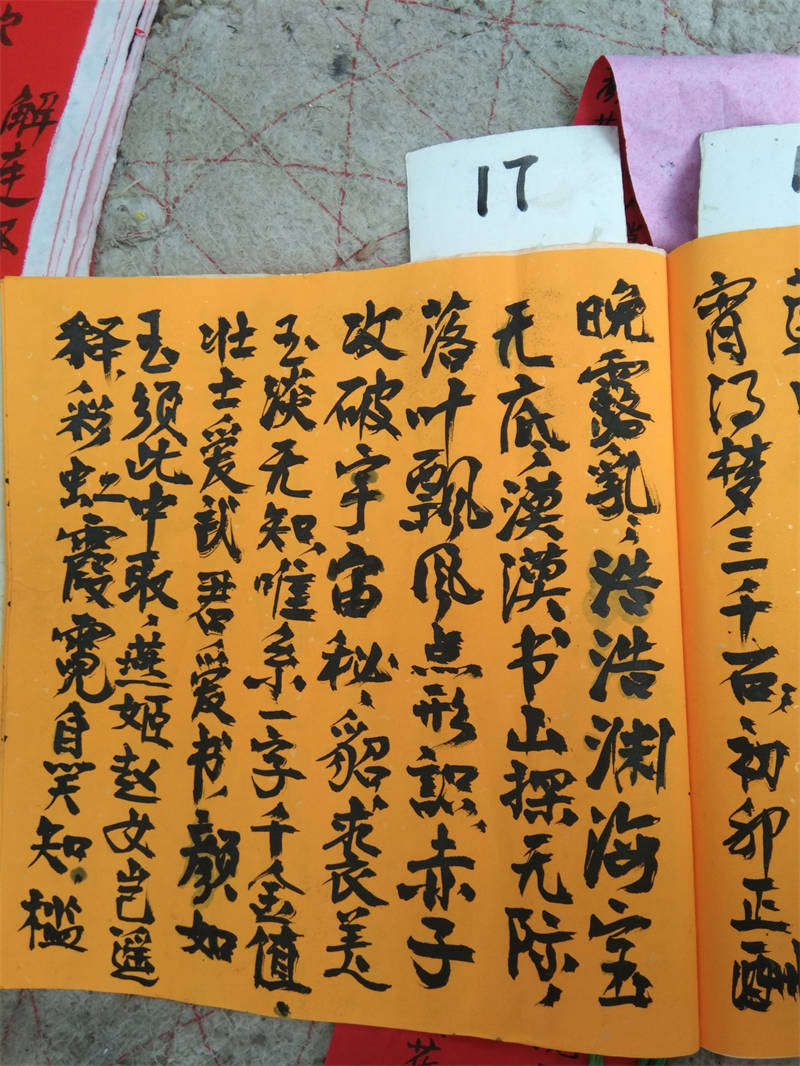 17
宵得梦三千石,初卯正酣
晚露乳,浩浩渊海宝
无底,漠漠书山探无际,
落叶飘风点形识,赤子
攻破宇宙秘,貂裘衣美
玉淡无知,唯系一字千金值。
壮士爱武君爱书,颜如
玉须此中取,燕姬赵女岂遥
释,彩虹霞霓自笑知槛
解